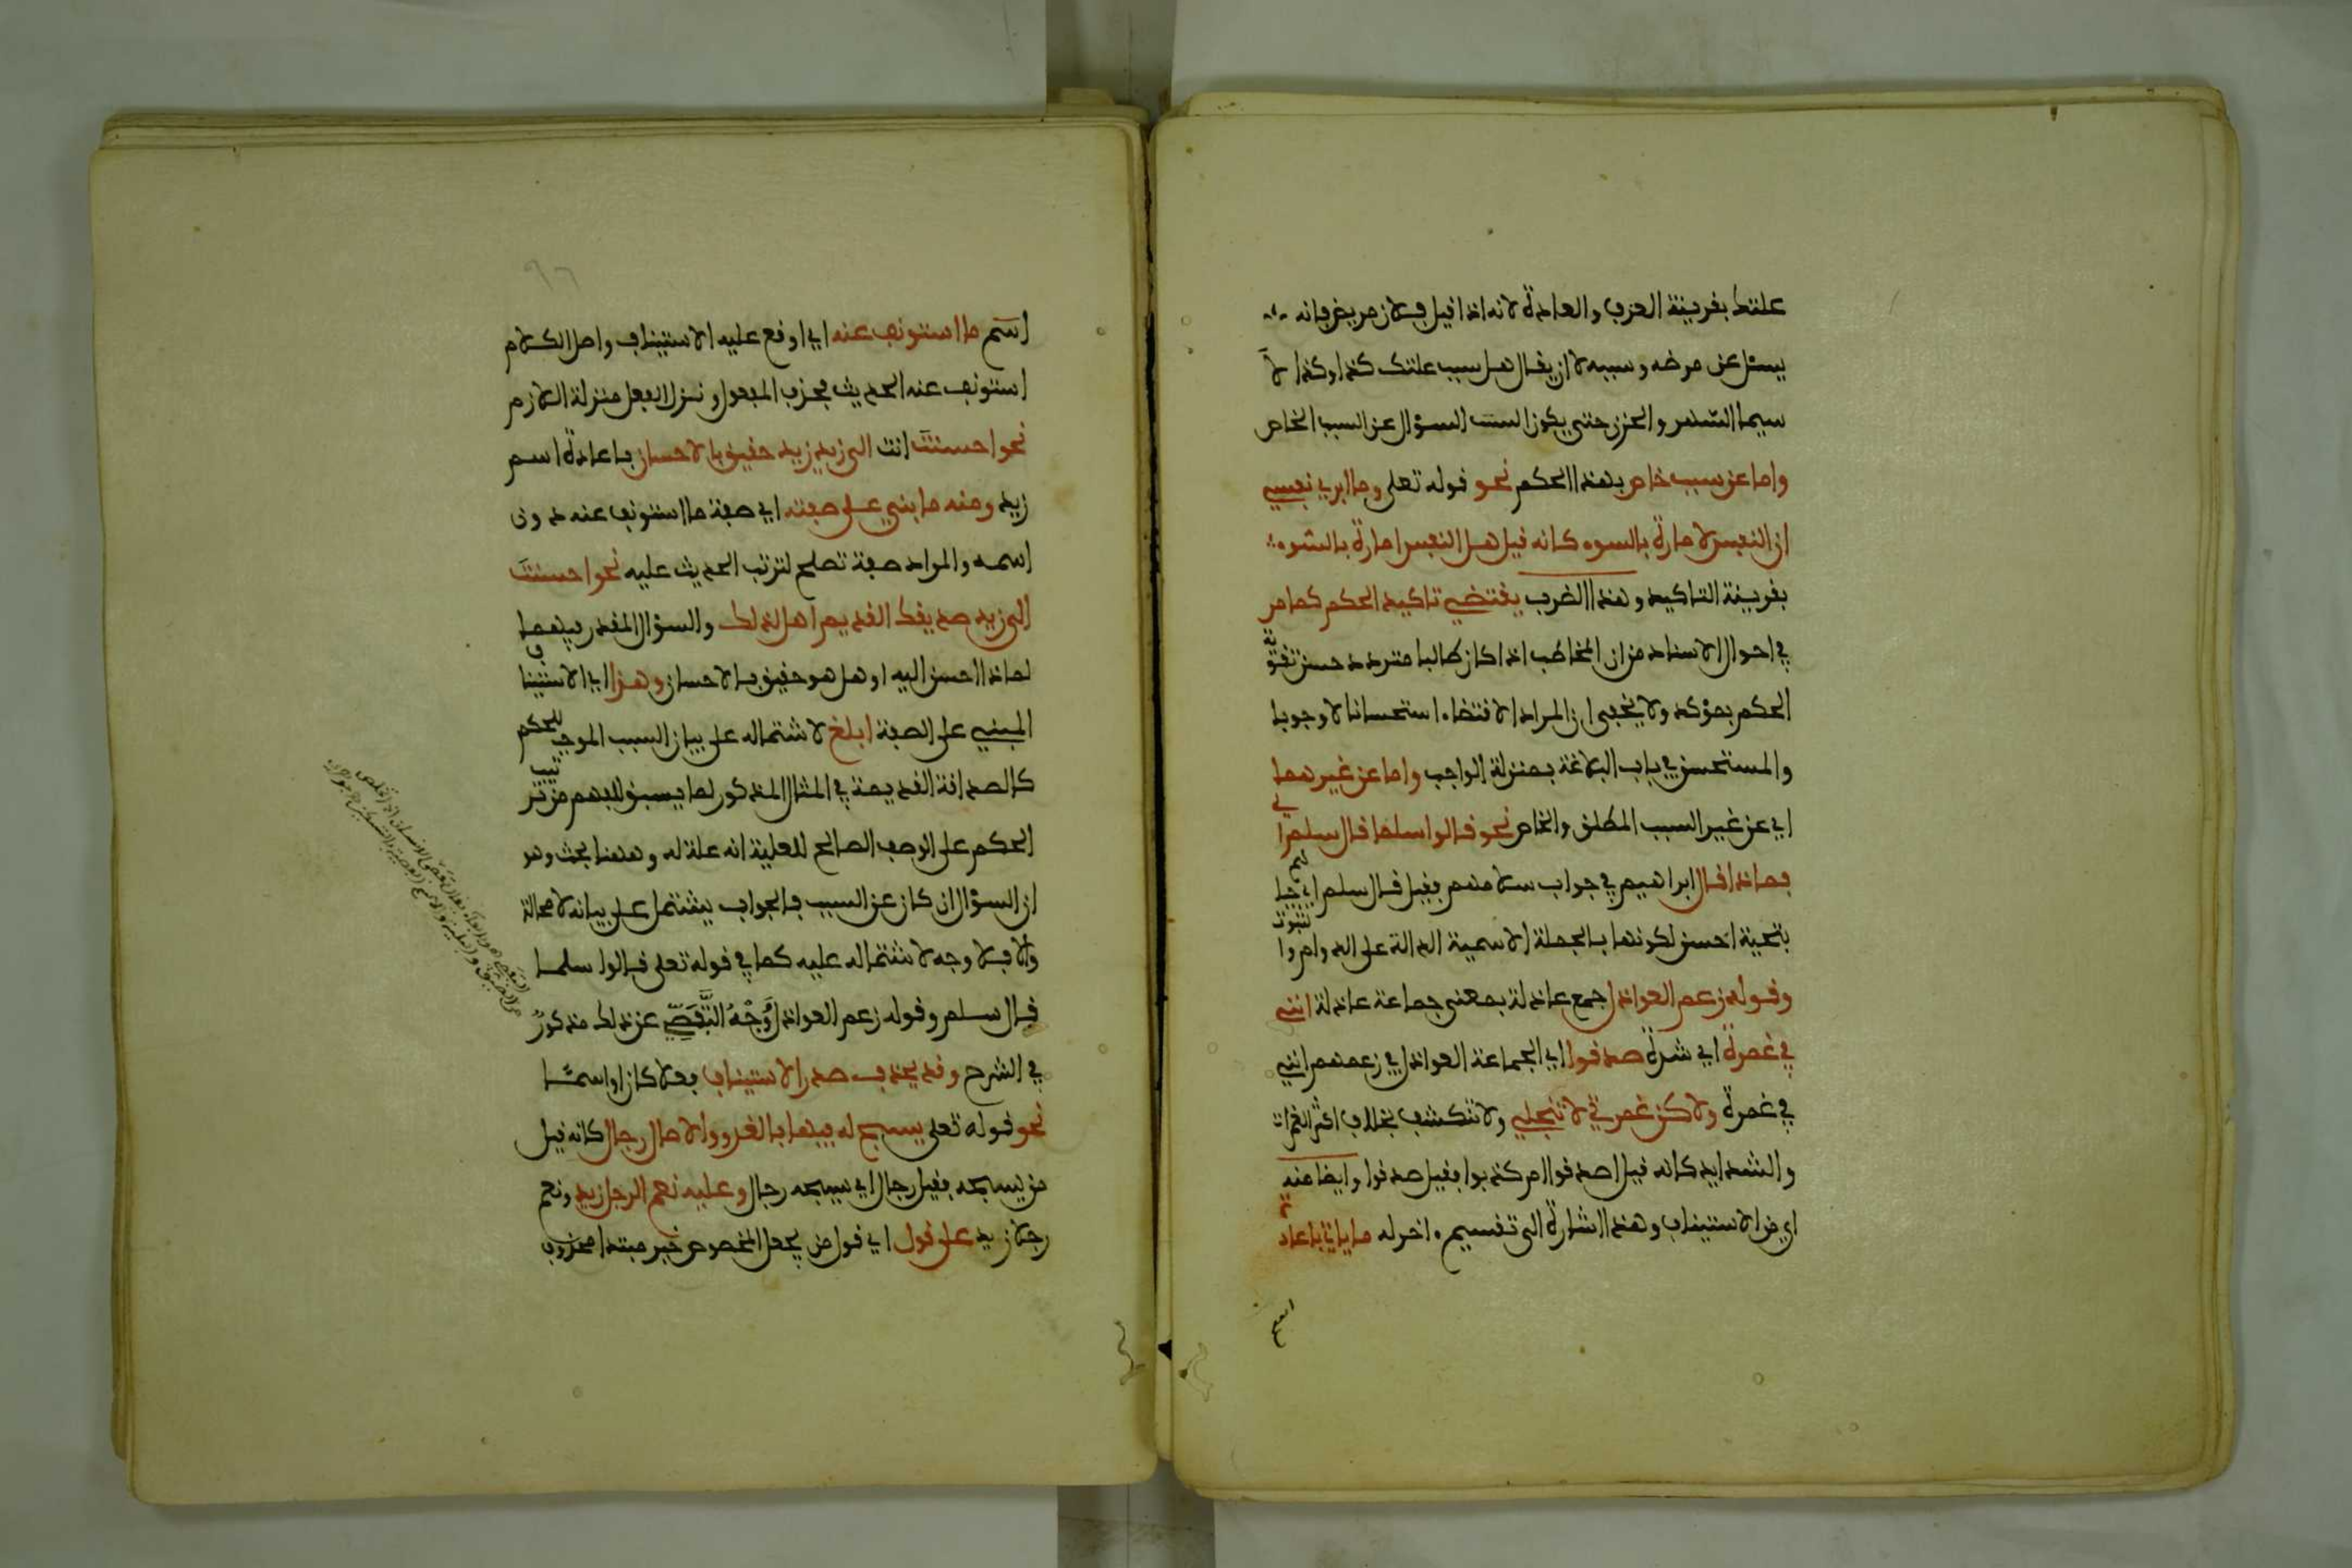 علتك بقرينة العرف والعادة لانه اذا قيل فلان مريض فانه
يسئل عن مرضه وسببه لا ان يقال هل سبب علتك كذا وكذا لا
سيما السهر والحزن حتى يكون السبب السؤال عن السبب الخاص
واما عن سبب خاص بهذا الحكم نحو قوله تعلى وما ابري نفسي
ان النفس لامارة بالسوء كانه قيل هل النفس امارة بالسوء
بقرينة التاكيد وهذا الضرب يقتضي تاكيد الحكم كما مر
في احوال الاسناد من ان المخاطب اذا كان طالبا متردد حسن تقوية
الحكم بمؤكد ولا يخفى ان المراد الاقتضاء استحسانا لا وجوبا
والمستحسن في باب البلاغة بمنزلة الواجب واما عن غيرهما
اي عن غير السبب المطلق والخاص نحو قالوا سلما قال سلم اي
فماذا قال ابراهيم في جواب سلامهم فقيل قال سلم اي حياهم
بتحية احسن لكونها بالجملة الاسمية الدالة على الدوام والثبوت
وقوله زعم العواذل جمع عاذلة بمعنى جماعة عاذلة انني
في غمرة اي شدة صدقوا اي الجماعة العواذل في زعمهم انني
في غمرة ولاكن غمرتي لا تنجلي ولا تنكشف بخلاف اكثر الغمرات
والشدايد كانه قيل اصدقوا ام كذبوا فقيل صدقوا وايضا منه
اي من الاستيناف وهذا اشارة الى تقسيم اخر له ما ياتي باعادة
اسم
٩٦
اسم ما استونف عنه اي اوقع عليه الاستيناف واصل الكلام
استونف عنه الحديث فحذف المفعول ونزل الفعل منزلة اللازم
نحو احسنت انت الى زيد زيد حقيق بالاحسان باعادة اسم
زيد ومنه ما بني على صفته اي صفة ما استونف عنه دون
اسمه والمراد صفة تصلح لترتب الحديث عليه نحو احسنت
الى زيد صديقك القديم اهل لذلك والسؤال المقدر فيهما
لماذا احسن اليه او هل هو حقيق بالاحسان وهذا اي الاستيناف
المبني على الصفة ابلغ لاشتماله على بيان السبب الموجب للحكم
كالصداقة القديمة في المثال المذكور لما يسبق للفهم من ترتيب
الحكم على الوصف الصالح للعلية انه علة له وههنا بحث وهو
ان السؤال ان كان عن السبب فالجواب يشتمل على بيانه لا محالة
والا فلا وجه لاشتماله عليه كما في قوله تعلى قالوا سلما
قال سلم وقوله زعم العواذل وَوَجْهُ التَّفَصِّي عن ذلك مذكورٌ
في الشرح وقد يحذف صدر الاستيناف فعلا كان او اسمًا
نحو قوله تعلى يسبح له فيها بالغدو والاصال رجال كانه قيل
من يسبحه فقيل رجال اي يسبحه رجال وعليه نعم الرجل زيد ونعم
رجلا زيد على قول اي قول من يجعل المخصوص خبر مبتدا محذوف